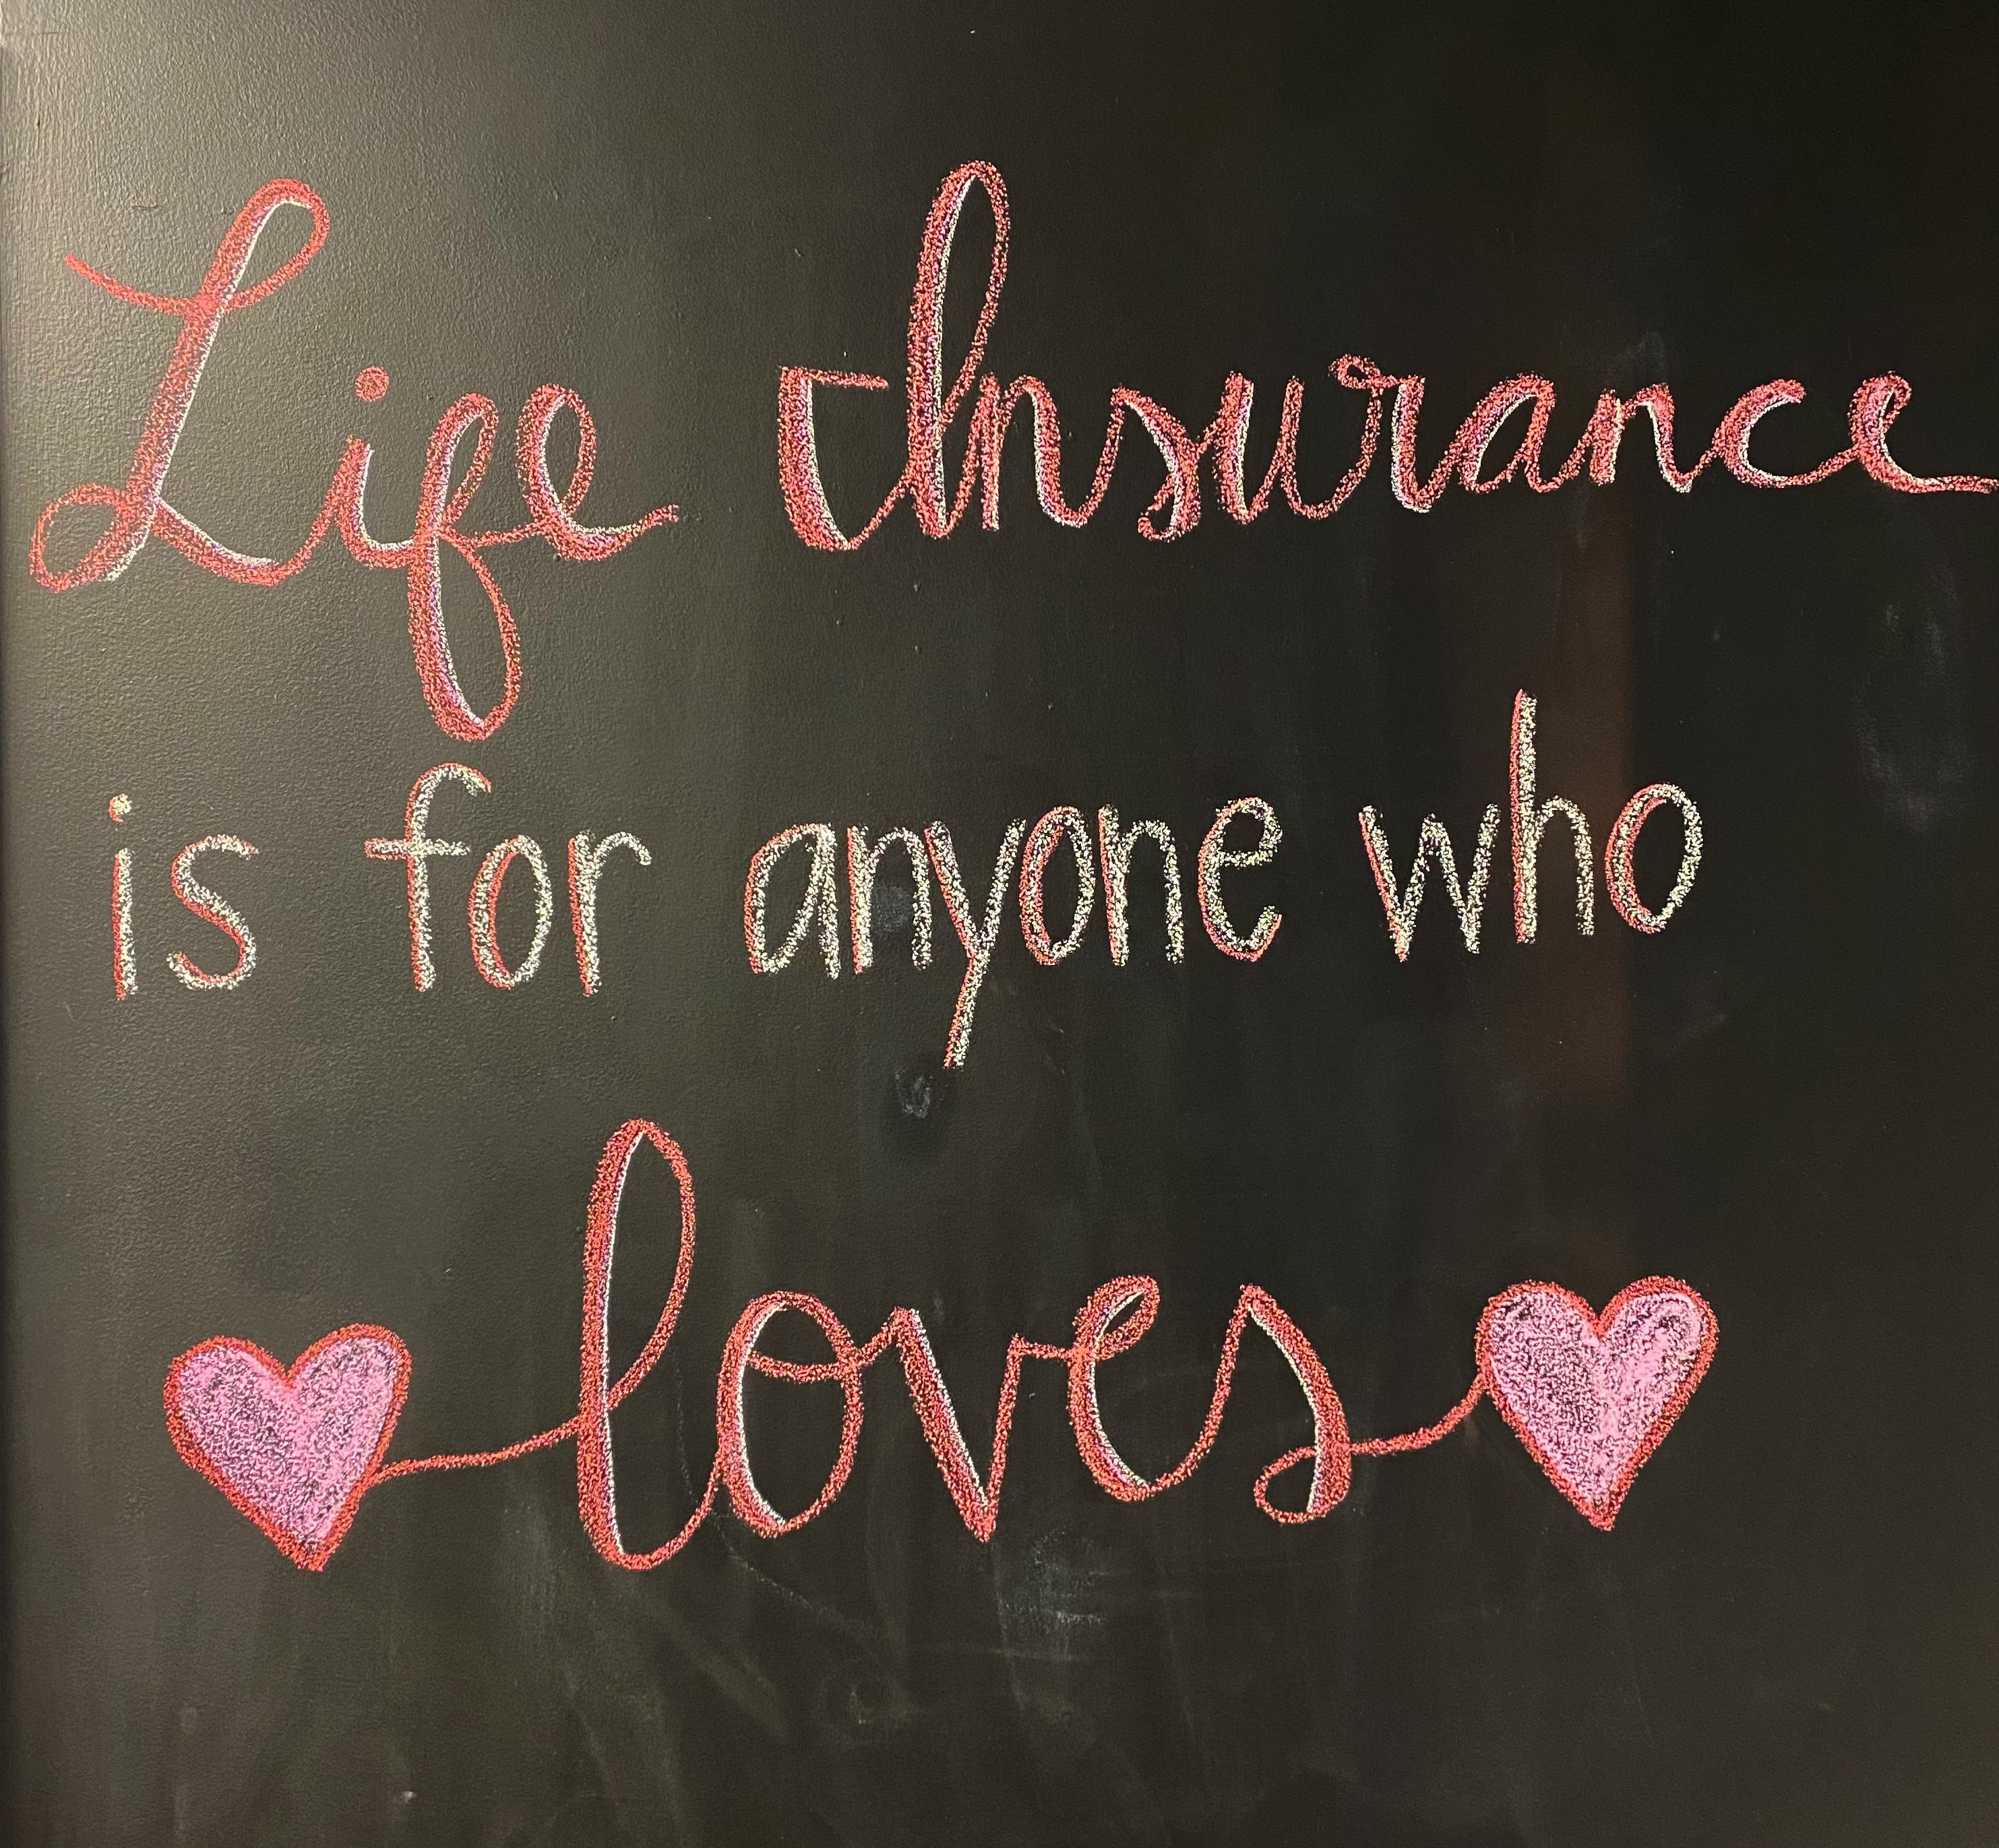 Life Insurance
is for anyone who
loves